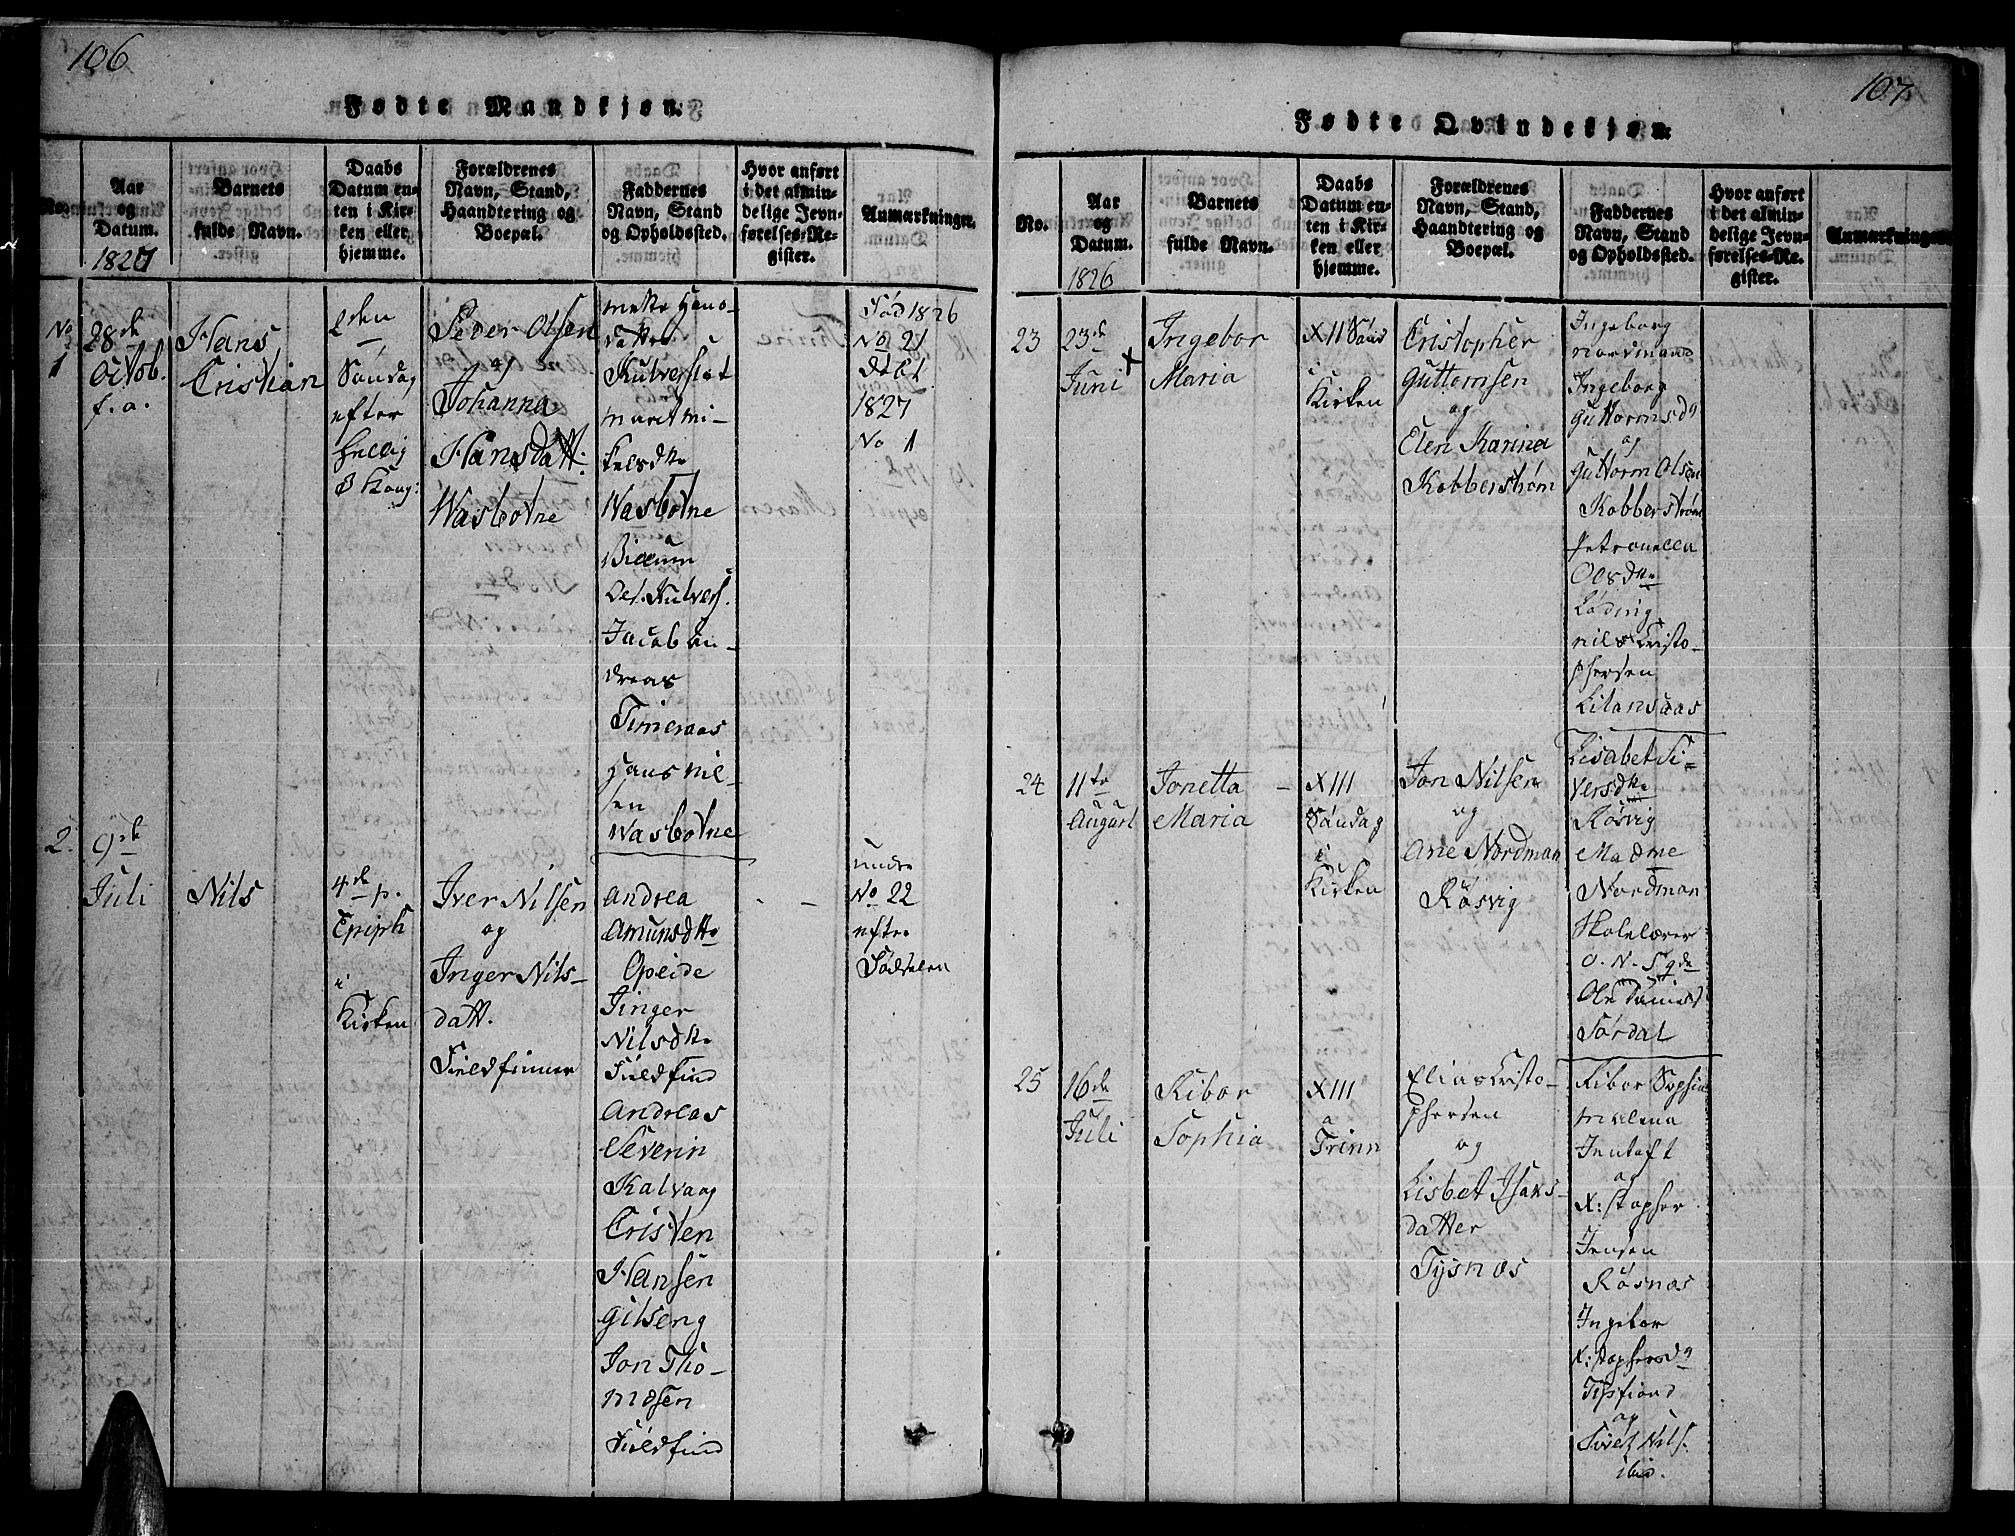 106
Fødte Mandkjøn.
No.
Aar
og
Datum.
1827
Barnets
fulde Navn.
Daabs
Datum en-
ten i Kir-
ken eller
hjemme.
Forældrenes
Navn, Stand,
Haandtering og
Boepæl.
Faddernes
Navn, Stand
og Opholdssted.
Hvor anført
i det almin-
delige Jevn-
førelses-Re-
gister.
Anmærkninger.
No
1
28de
Octob.
f. a.
Hans
Cristian
2den
Søndag
efter
hellig
3 Kong:
Peder Olsen
og
Johanna
Hansdatt:
Wasbotne
Mette Hans-
datter
Kulverslat
Marit Mi-
kelsdtte
Wasbotne
Billum
Jacob An-
dreas
Hans Nil-
sen
Wasbotne
Fød 1826
No 21
døbt
1827
No 1
2.
9de
Juli
Nils
4de p.
Epiph
i
Kirken
Iver Nilsen
og
Inger Nils-
datt.
Fieldfinner
Andrea
Amunsdtte
Opeide
Inger
Nilsdtte
Fieldfind
Andreas
Severin
Kalvaag
Cristen
Hansen
Gilseng
Jon Tho-
mæsen
Fieldfind
under
No 22
efter
Fødselen
107
Fødte Qvindekjøn.
No.
Aar
og
Datum.
1826
Barnets
fulde Navn.
Daabs
Datum en-
ten i Kir-
ken eller
hjemme.
Forældrenes
Navn, Stand,
Haandtering og
Boepæl.
Faddernes
Navn, Stand
og Opholdssted.
Hvor anført
i det almin-
delige Jevn-
førelses-Re-
gister.
Anmærkninger
23
23de
Juni
Ingebor
Maria
XII Sønd
i
Kirken
Cristopher
Guttomsen
og
Elen Karina
Kobberstrøm
Ingeborg
Nordmand
Ingeborg
Guttormsd
og
Guttorm Olsen
Kobberstrøm
Petronella
Olsdtte
Løding
Nils Cristo-
phersen
24
11te
August
Jonetta
Maria
XIII
Søndag
i
Kirken
Jon Nilsen
og
Ane Nordman
Røsvig
Lisabet Si-
versdtte
Røsvig
Madme
Nordman
Skolelærer
Sørdal
25
16de
Juli
Kibor
Sophia
XIII
a
Trinn
Elias Cristo-
phersen
og
Lisbet Isaks-
datter
Tysnes
Kibor Sophia
Malena
Jentoft
og
X:stopher
Jensen
Røsnæs
Ingebor
X:stophersd
og
Nils.
ibid.